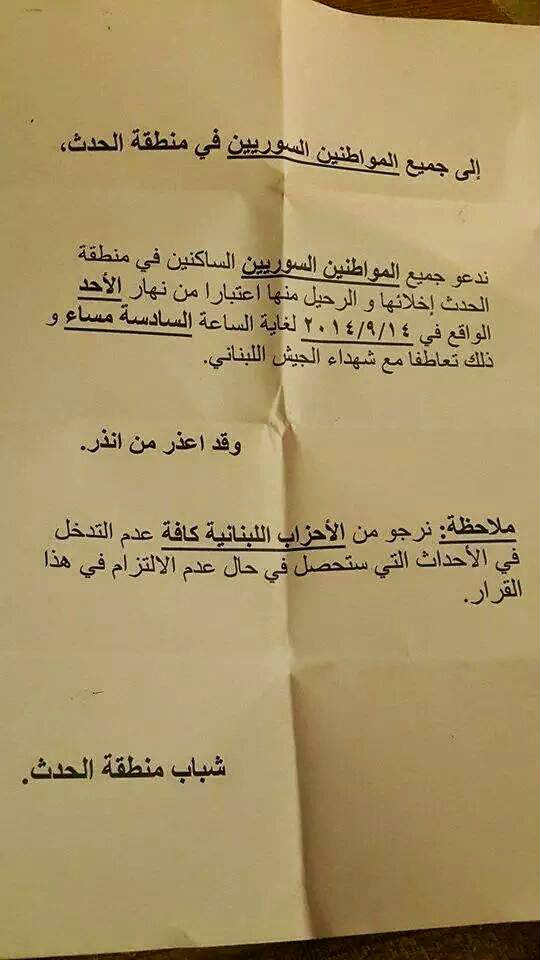 إلى جميع المواطنين السوريين في منطقة الحدث،
ندعو جميع المواطنين السوريين الساكنين في منطقة
الحدث إخلائها و الرحيل منها اعتبارا من نهار الأحد
الواقع في ٢٠١٤/٩/١٤ لغاية الساعة السادسة مساء و
ذلك تعاطفا مع شهداء الجيش اللبناني.
وقد اعذر من انذر.
ملاحظة: نرجو من الأحزاب اللبنانية كافة عدم التدخل
في الأحداث التي ستحصل في حال عدم الالتزام في هذا
القرار.
شباب منطقة الحدث.